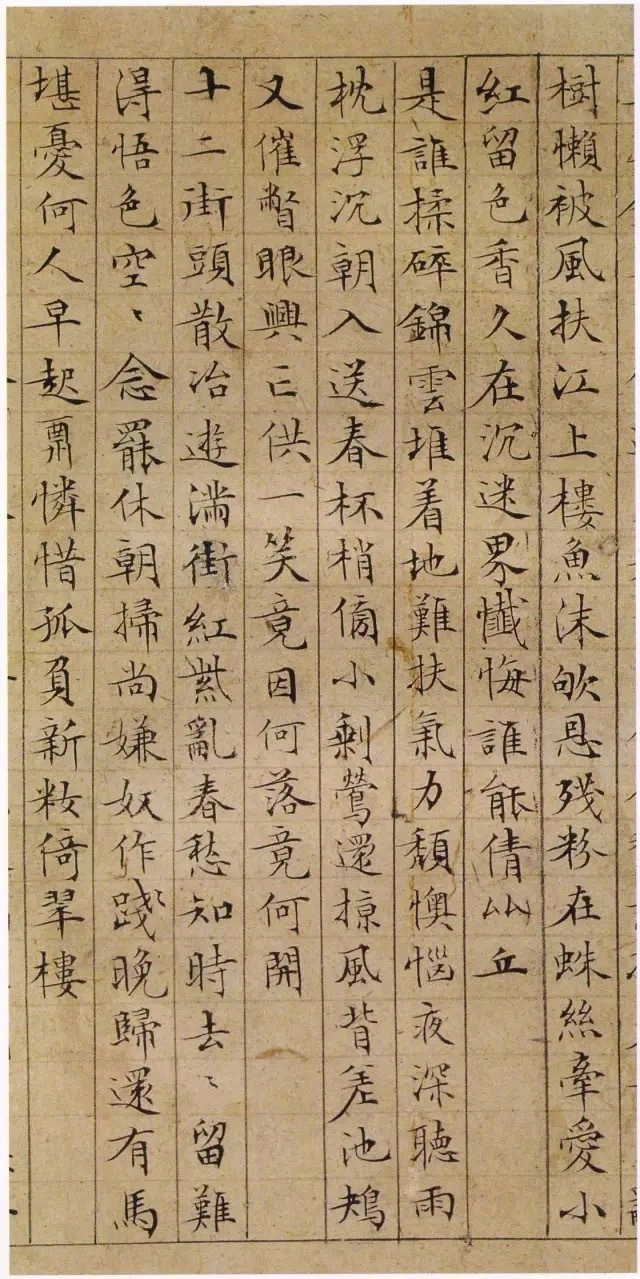 樹懶被風扶江上樓魚沫欨恩殘粉在蛛絲牽愛小
紅留色香久在沉迷界懺悔誰能倩比丘
是誰揉碎錦雲堆着地難扶氣力頹懊惱夜深聽雨
枕浮沉朝入送春杯梢傍小剩鶯還掠風背差池鴂
又催瞥眼興亡供一笑竟因何落竟何開
十二街頭散冶遊滿街紅紫亂春愁知時去〻留難
得悟色空〻念罷休朝掃尚嫌奴作踐晚歸還有馬
堪憂何人早起獨憐惜孤負新妝倚翠樓